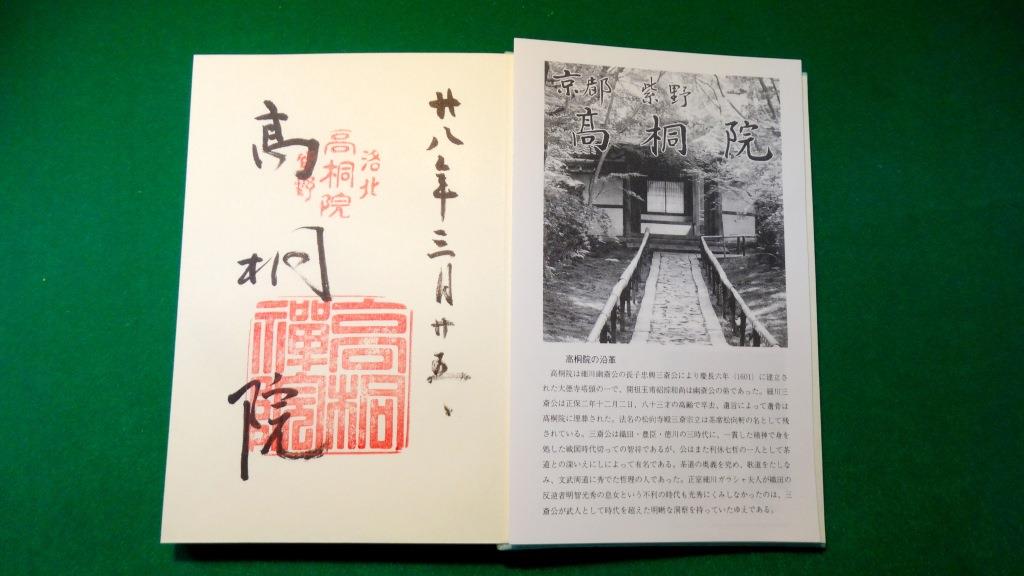 廿八年三月廿五、
洛北
高桐院
紫野
高桐院
高桐
禅院
京都 紫野
高桐院
高桐院の沿革
高桐院は細川幽斎公の長子忠興三斎公により慶長六年（1601）に建立さ
れた大徳寺塔頭の一で、開祖玉甫紹琮和尚は幽斎公の弟であった。細川三
斎公は正保二年十二月二日、八十三才の高齢で卒去、遺言によって遺骨は
高桐院に埋葬された。法名の松向寺殿三斎宗立は茶席松向軒の名として残
されている。三斎公は織田・豊臣・徳川の三時代に、一貫した精神で身を
処した戦国時代切っての智将であるが、公はまた利休七哲の一人として茶
道との深いえにしによって有名である。茶道の奥義を究め、歌道をたしな
み、文武両道に秀でた哲理の人であった。正室細川ガラシャ夫人が織田の
反逆者明智光秀の息女という不利の時代も光秀にくみしなかったのは、三
斎公が武人として時代を超えた明晰な洞察を持っていたゆえである。